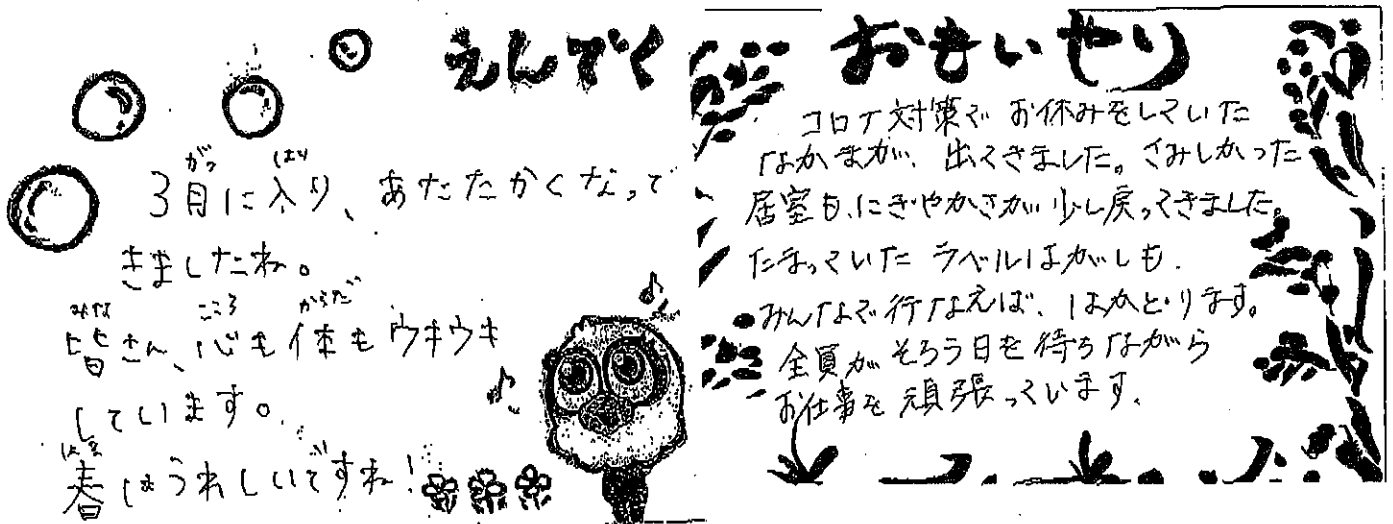 えんでく
3月に入り、あたたかくなって
きましたね。
皆さん、心も体もウキウキ
しています。
春はうれしいですね!
おもいやり
コロナ対策で お休みをしていた
なかまが、出てきました。さみしかった
居室も、にぎやかさが少し戻ってきました。
たまっていた ラベルはがしも、
みんなで行なえば、はかどります。
全員がそろう日を待ちながら
お仕事を頑張っています。